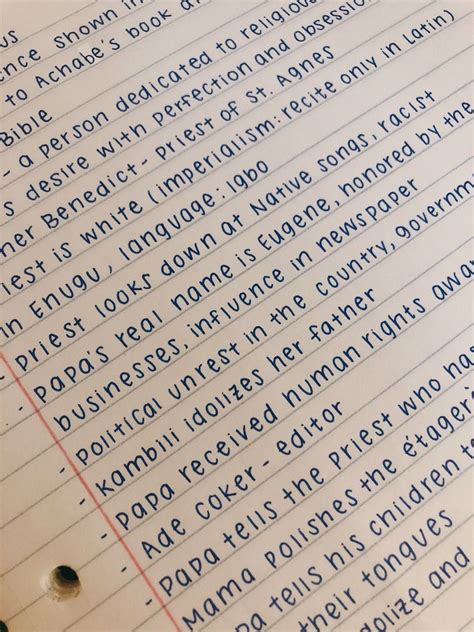 ence shown in
to Achabe's book a
Bible
- a person dedicated to religious
s desire with perfection and obsessio
her Benedict- Priest of St. Agnes
iest is white (imperialism: recite only in Latin)
in Enugu, language: Igbo
- Priest looks down at Native songs, racist
- Papa's real name is Eugene, honored by the
businesses, influence in newspaper
- Political unrest in the country, governm
- Kambili idolizes her father
- Papa received human rights awa
- Ade Coker - editor
- Papa tells the Priest who has
Mama polishes the étager
pa tells his children t
their tongues
dolize and